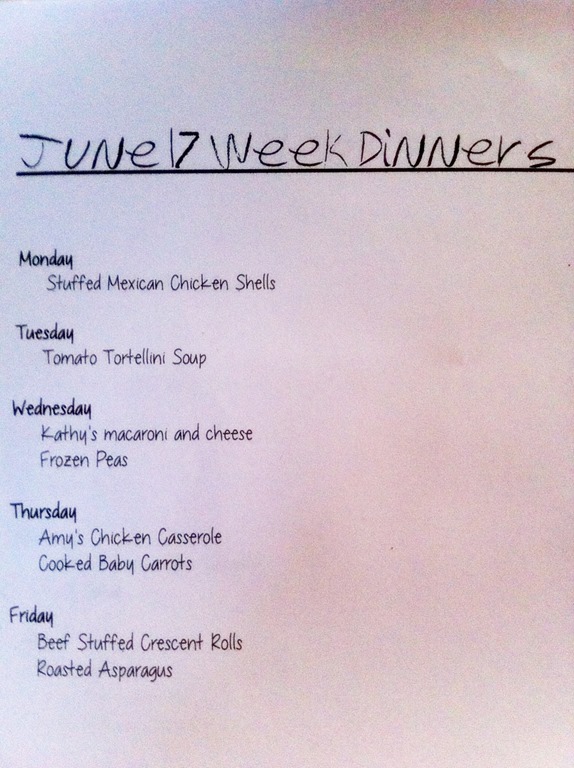 June 17 Week Dinners
Monday
Stuffed Mexican Chicken Shells
Tuesday
Tomato Tortellini Soup
Wednesday
Kathy's macaroni and cheese
Frozen Peas
Thursday
Amy's Chicken Casserole
Cooked Baby Carrots
Friday
Beef Stuffed Crescent Rolls
Roasted Asparagus